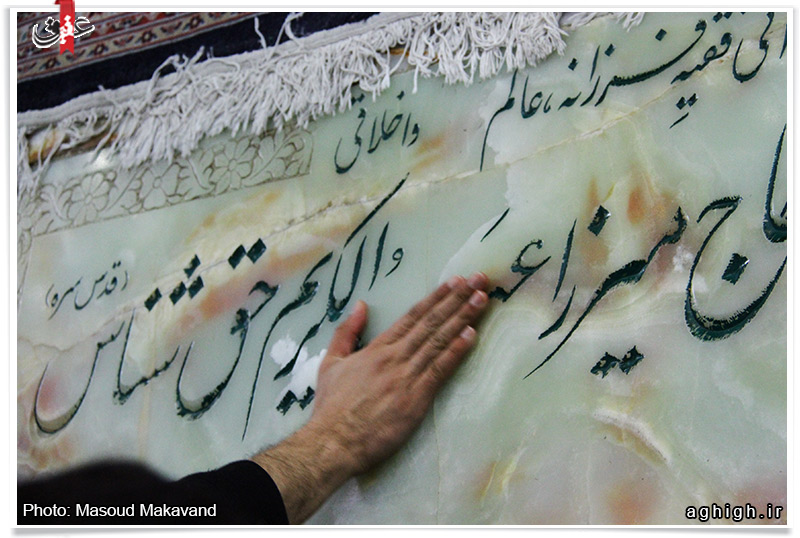 عقیق
فقیه فرزانه، عالم و اخلاقی
حاج میرزا عبدالکریم حق شناس (قدس سره)
Photo: Masoud Makavand
aghigh.ir